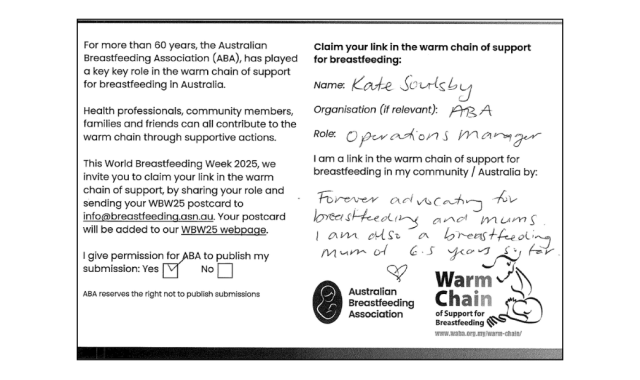 For more than 60 years, the Australian
Breastfeeding Association (ABA), has played
a key key role in the warm chain of support
for breastfeeding in Australia.
Health professionals, community members,
families and friends can all contribute to the
warm chain through supportive actions.
This World Breastfeeding Week 2025, we
invite you to claim your link in the warm
chain of support, by sharing your role and
sending your WBW25 postcard to
info@breastfeeding.asn.au. Your postcard
will be added to our WBW25 webpage.
I give permission for ABA to publish my
submission: Yes No
ABA reserves the right not to publish submissions
Claim your link in the warm chain of support
for breastfeeding:
Name: Kate Soulsby
Organisation (if relevant): ABA
Role: Operations Manager
I am a link in the warm chain of support for
breastfeeding in my community / Australia by:
Forever advocating for
breastfeeding and mums.
I am also a breastfeeding
mum of 6.5 years so far.
Australian
Breastfeeding
Association
Warm
Chain
of Support for
Breastfeeding
www.waba.org.my/warm-chain/